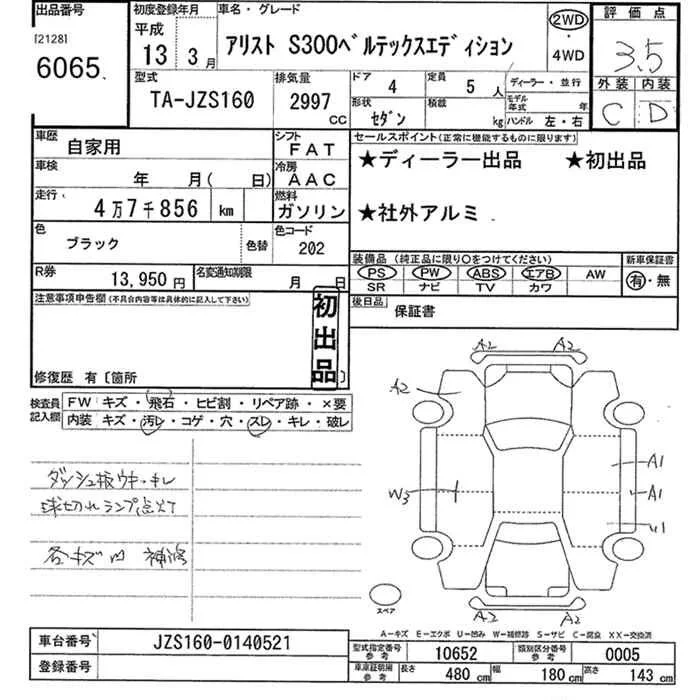 出品番号
[2128]
6065
初度登録年月
平成
13 3月
車名・グレード
アリスト S300ベルテックスエディション
2WD
・
4WD
評価点
3.5
外装 内装
C D
型式
TA-JZS160
排気量
2997
CC
ドア 4
定員 5人
形状
セダン
積載
kg
ディーラー・並行
モデル
年式 年
ハンドル 左・右
車歴
自家用
シフト
FAT
車検
年 月( 日)
冷房
AAC
走行
4万7千856 km
燃料
ガソリン
色
ブラック
色替
色コード
202
R券
13,950円
名変通知期限
月 日
セールスポイント(正常に機能するものに限ります)
★ディーラー出品 ★初出品
★社外アルミ
装備品(純正品に限り○をつけてください)
PS PW ABS エアB AW
SR ナビ TV カワ
新車保証書
有・無
後日品
保証書
注意事項申告欄(不具合内容等は具体的に記入して下さい)
初出品
修復歴 有〔箇所 〕
検査員
記入欄
FW キズ・飛石・ヒビ割・リペア跡・×要
内装 キズ・汚レ・コゲ・穴・スレ・キレ・破レ
ダッシュ板ウキ・キレ
球切れランプ点灯
各キズ凹 補修
A2 A2
A2
A1
W3
A1
U1
スペア
A2 A2
A-キズ E-エクボ U-凹み W-補修跡 S-サビ C-腐食 XX-交換済
車台番号
JZS160-0140521
登録番号
型式指定番号
参考
10652
類別区分番号
参考
0005
車庫証明用
参考
長さ 480cm
幅 180cm
高さ 143cm